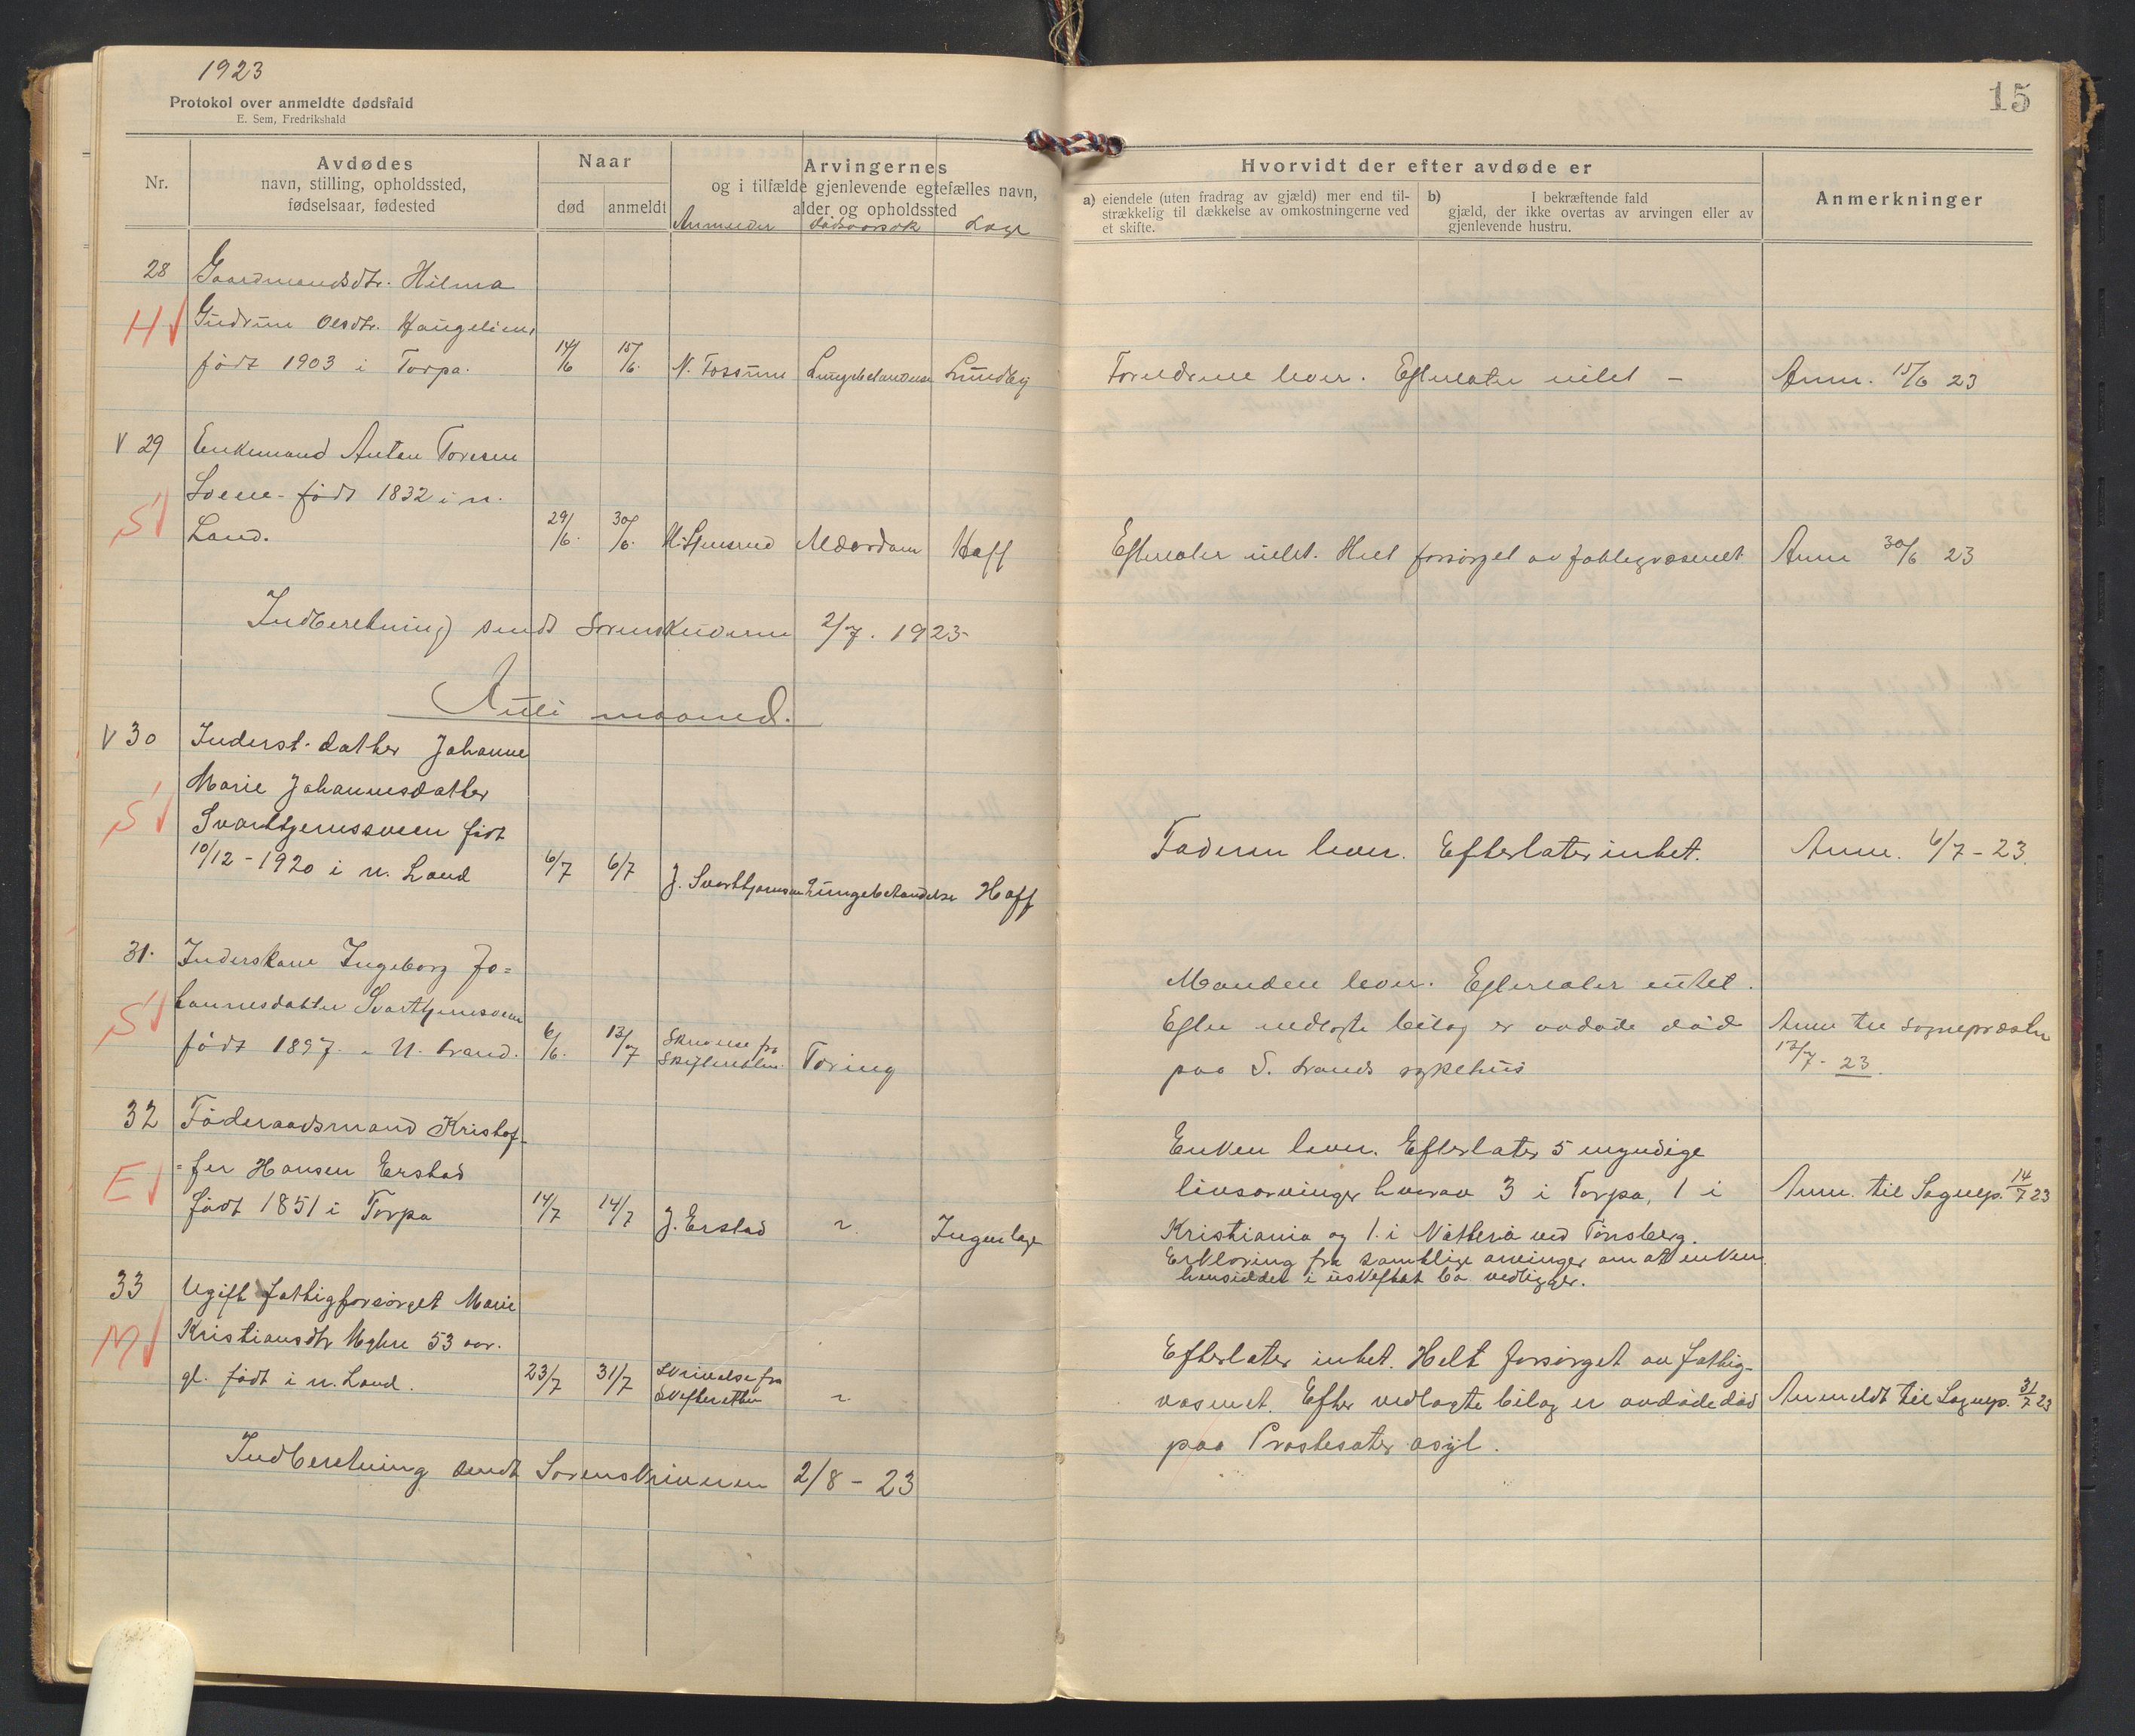 1923
Protokol over anmeldte dødsfald
E. Sem, Fredrikshald
15
Nr.
Avdødes
navn, stilling, opholdssted,
fødselsaar, fødested
Naar
død
anmeldt
Arvingernes
og i tilfælde gjenlevende egtefælles navn,
alder og opholdssted
Anmelder dødsaarsak Læge
Hvorvidt der efter avdøde er
a) eiendele (uten fradrag av gjæld) mer end til-
strækkelig til dækkelse av omkostningerne ved
et skifte.
b) I bekræftende fald
gjæld, der ikke overtas av arvingen eller av
gjenlevende hustru.
Anmerkninger
28 Gaardmandsdtr. Hilma
H Gudrun Olsdtr. Haugelien,
født 1903 i Torpa. 14/6 15/6. N. Fossum Lungebetændelse Lundby Forældrene lever. Efterlater intet - Anm. 15/6 23
V 29 Enkemand Anton Toresen
S Sveen - født 1832 i n.
Land. 29/6. 30/6. Alderdom Hoff Efterlater intet. Helt forsørget av fattigvæsenet Anm 30/6 23
Indberetning sendt Sorenskriveren 2/7. 1923-
Juli maaned.
V 30 Inderst. datter Johanne
Marie Johannesdatter
S Svarttjernssveen født
10/12 - 1920 i n. Land 6/7 6/7 J. Svarttjernsveen Lungebetændelse Hoff Faderen lever. Efterlater intet. Anm. 6/7 - 23.
31. Inderskone Ingeborg Jo=
S hannesdatter Svarttjernsveen
født 1897. - N. Land. 6/6. 13/7 Skrivelse fra
Skifteretten. Tæring
Manden lever. Efterlater intet.
Efter vedlagte bilag er avdøde død
paa S. Lands sykehus
Anm til sognepræsten
13/7 - 23.
32 Føderaadsmand Kristof-
E =fer Hansen Erstad
født 1851 i Torpa 14/7 14/7 J. Erstad ~. Ingen læge
Enken lever. Efterlater 5 myndige
livsarvinger hvorav 3 i Torpa, 1 i
Kristiania og 1. i Nøtterø ved Tønsberg.
Erklæring fra samtlige arvinger om at enken
hensidder i uskiftet bo vedligger.
Anm. til Sognep. 14/7 23
33 Ugift fattigforsørget Marie
M Kristiansdtr Myhre 53 aar.
gl. født i n. Land. 23/7 31/7 Skrivelse fra
Skifteretten ~
Efterlater intet. Helt forsørget av fattig-
væsenet. Efter vedlagte bilag er avdøde død
paa Prestesæter asyl.
Anmeldt til Sognep. 31/7 23
Indberetning sendt Sorenskriveren 2/8 - 23